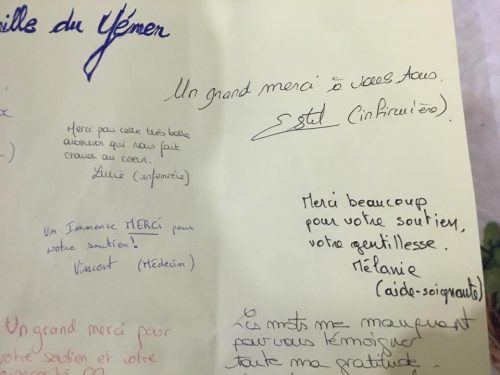 ille du Yémen
Un grand merci à vous tous.
(infirmière).
Merci pour cette très belle
qui nous fait
chaud au coeur.
Lucie (infirmière)
Merci beaucoup
pour votre soutien,
votre gentillesse.
Mélanie
(aide-soignante)
Un Immense MERCI pour
votre soutien!
Vincent (Médecin)
Un grand merci pour
votre soutien et votre
Les mots me manquent
pour vous témoigner
toute ma gratitude.